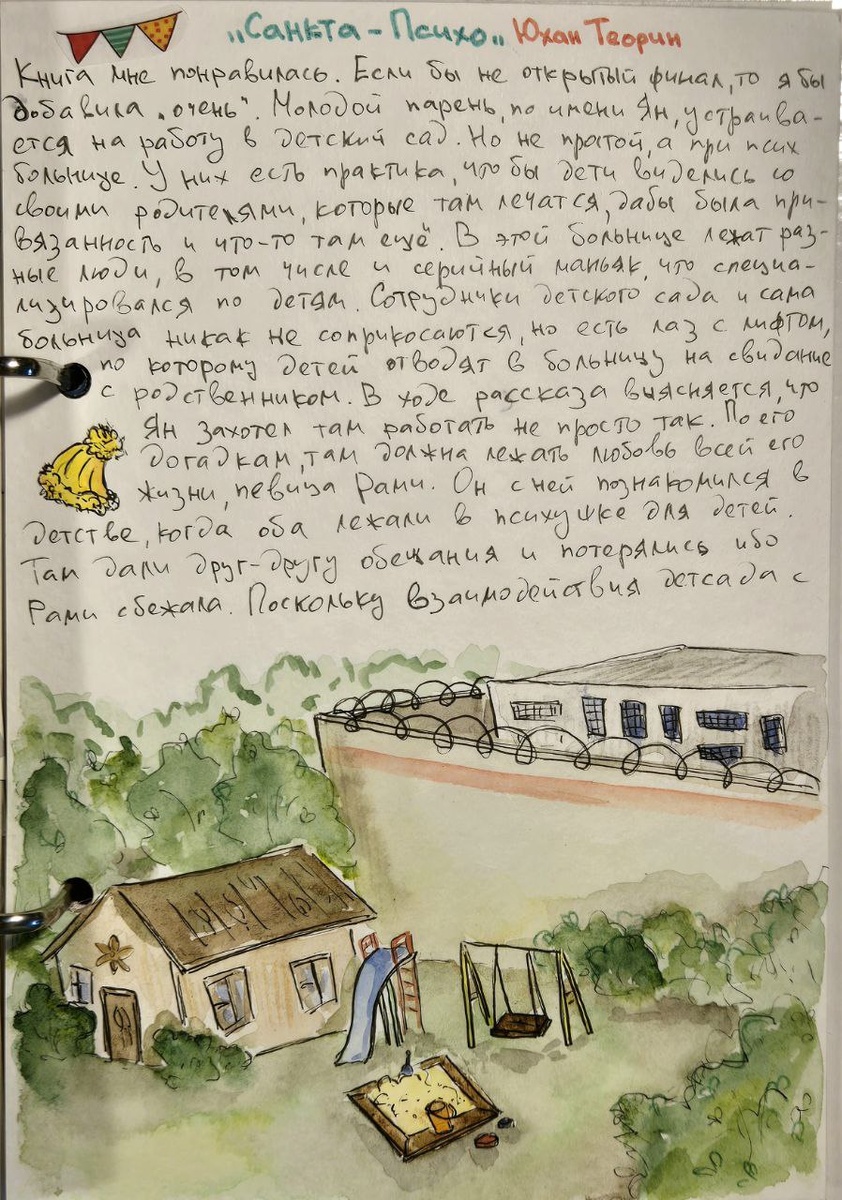 „Санкта-Психо„ Юхан Теорин
Книга мне понравилась. Если бы не открытый финал, то я бы
добавила „очень". Молодой парень, по имени Ян, устраива-
ется на работу в детский сад. Но не простой, а при псих
больнице. У них есть практика, что бы дети виделись со
своими родителями, которые там лечатся, дабы была при-
вязанность и что-то там ещё. В этой больнице лежат раз-
ные люди, в том числе и серийный маньяк, что специа-
лизировался по детям. Сотрудники детского сада и сама
больница никак не соприкосаются, но есть лаз с лифтом,
по которому детей отводят в больницу на свидание
с родственником. В ходе рассказа выясняется, что
Ян захотел там работать не просто так. По его
догадкам, там должна лежать любовь всей его
жизни, певица Рами. Он с ней познакомился в
детстве, когда оба лежали в психушке для детей.
Там дали друг-другу обещания и потерялись ибо
Рами сбежала. Поскольку взаимодействия детсада с